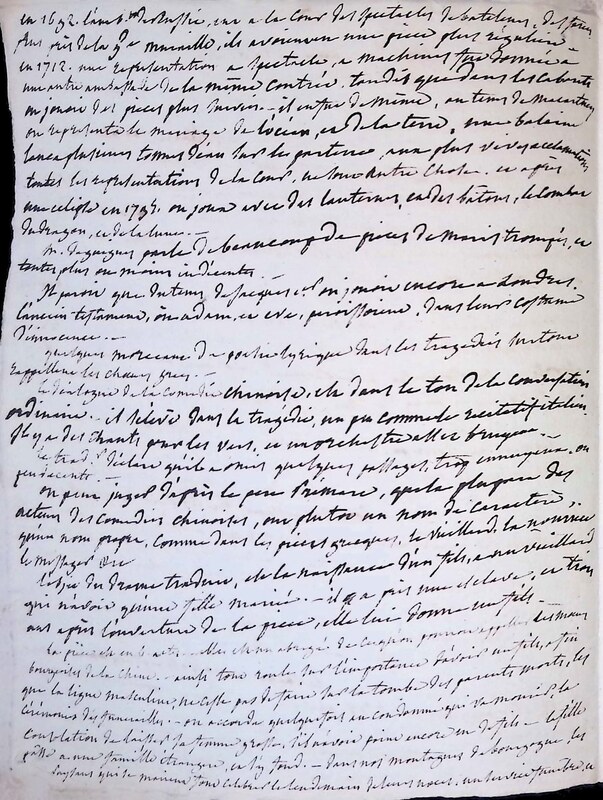 en 1692. l'amb. de Russie, eut a la Cour des spectacles de bateleurs, des farces
plus près de la gde muraille, ils avoient vu une piece plus reguliere
en 1712. une représentation a spectacle, a machines fut donnée a
une autre ambassade de la même contrée. tandis que dans les cabarets
on jouoit des pieces plus — il en fut de même, au tems de Macartney
on représenta le mariage de l'océan, et de la terre, une baleine
lança plusieurs tonnes d'eau sur le parterre, aux plus vives acclamations
toutes les représentations de la Cour, ne sont autre chose. et après
une eclipse en 1795. on joua avec des lanternes, et des bâtons, le combat
du dragon, et de la lune. —
M. de guignes parle de beaucoup de pieces de maris trompés, et
toutes plus ou moins indécentes. —
Il paroit que du tems de Jacques 1er on jouoit encore a Londres,
l'ancien testament, où adam, et eve, paroissoient, dans leur costume
d'innocence. —
quelques morceaux de poésie lyrique dans les tragedies surtout
rappellent les choeurs grecs. —
Le dialogue de la Comedie chinoise, est dans le ton de la conversation
ordinaire. — il s'élève dans la tragédie, un peu comme le récitatif italien
Il y a des chants pour les vers, et un orchestre assez bruyant —
Le trad. déclare qu'il a omis quelques passages, trop ennuyeux, ou
peu décents. —
On peut juger d'après le pere Prémare, que la plupart des
acteurs des comedies chinoises, ont plutot un nom de caractère,
qu'un nom propre, comme dans les pieces grecques, le vieillard, la nourrice
le messager &c
Le sujet du drame traduit, est de la naissance d'un fils, a un vieillard
qui n'avoit qu'une fille mariée. — il a pris une esclave, et trois
ans après l'ouverture de la piece, elle lui donne un fils —
La piece est en 5 actes — les moeurs
bourgeoises de la Chine. — ainsi tout roule sur l'importance d'avoir un fils, afin
que la ligne masculine, ne cesse pas de faire sur la tombe des parents morts, les
cérémonies des funerailles. — on accorde quelquefois au condamné qui va mourir, la
consolation de laisser sa femme grosse, s'il n'avoit point encore eu de fils — la fille
passe a une famille étrangere, et s'y fond. — dans nos montagnes de bourgogne, les
paysans qui se marient font celebrer le lendemain de leurs noces, un service funebre, et